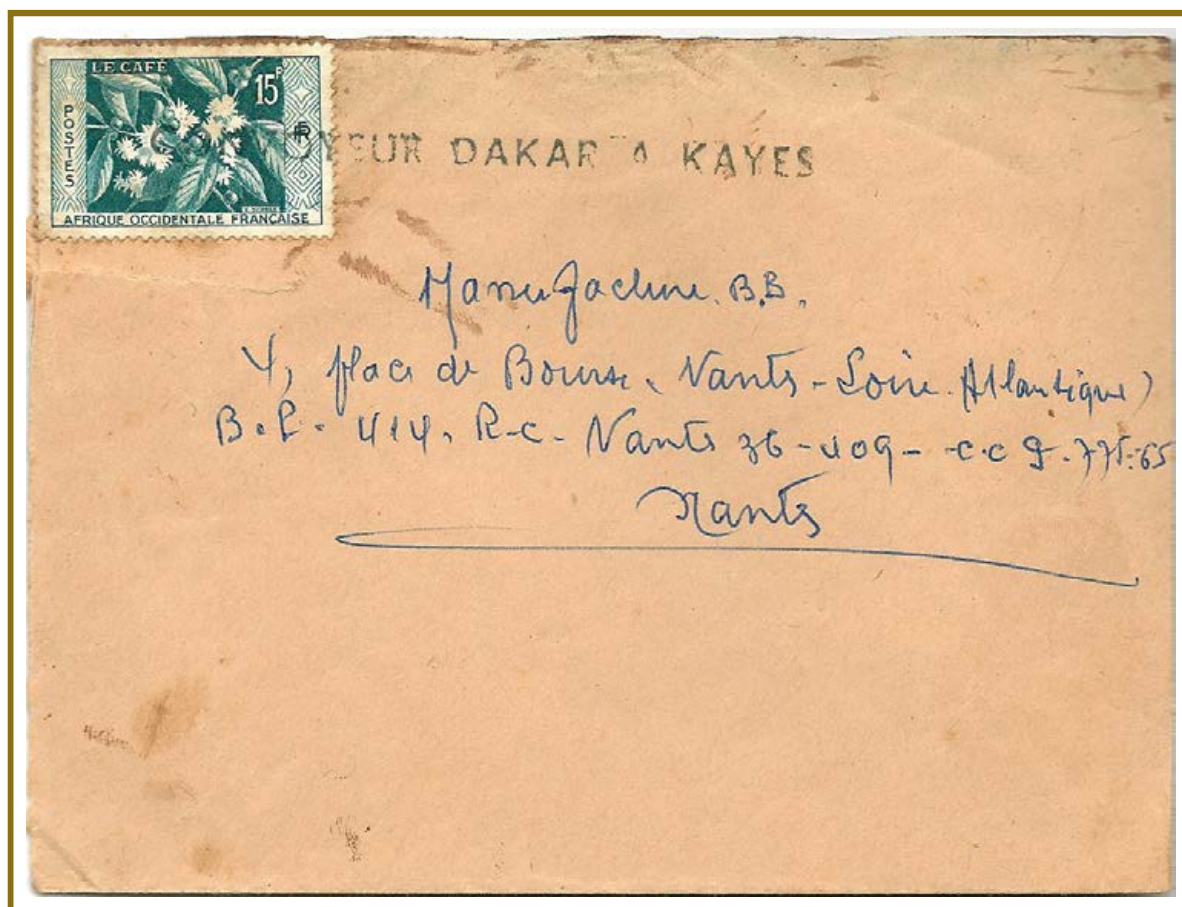 LE CAFÉ
15F
POSTES
RF
AFRIQUE OCCIDENTALE FRANÇAISE
CONVOYEUR DAKAR A KAYES
Manufacture. B.B.
4, place de Bourse. Nantes - Loire Atlantique)
B.P. 414. R.C. Nantes 36-409 - c.c
Nantes